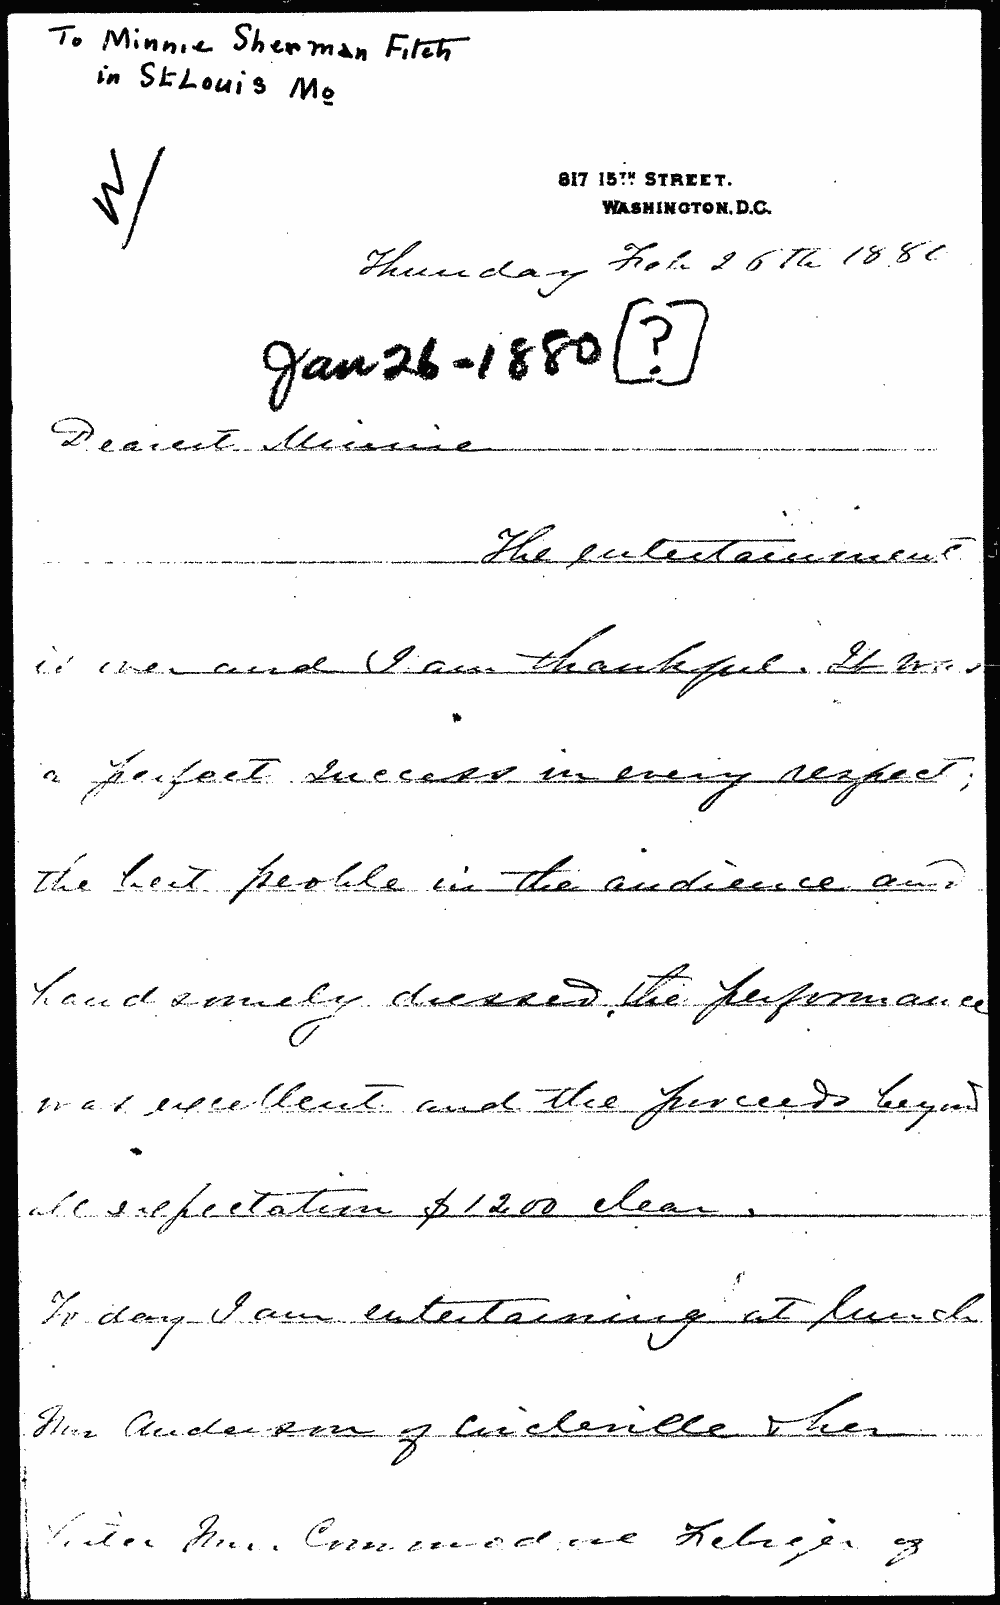 To Minnie Sherman Fitch
in St Louis Mo
W/
817 15TH STREET.
WASHINGTON, D.C.
Thursday Feb 26th 1880
Jan 26-1880 [?]
Dearest Minnie
The entertainment
is over and I am thankful. It was
a perfect success in every respect;
the best people in the audience and
handsomely dressed, the performance
was excellent and the proceeds beyond
all expectation $1200 clear.
To day I am entertaining at lunch
Mrs Anderson of Circleville & her
Sister Mrs. Commodore Febiger of